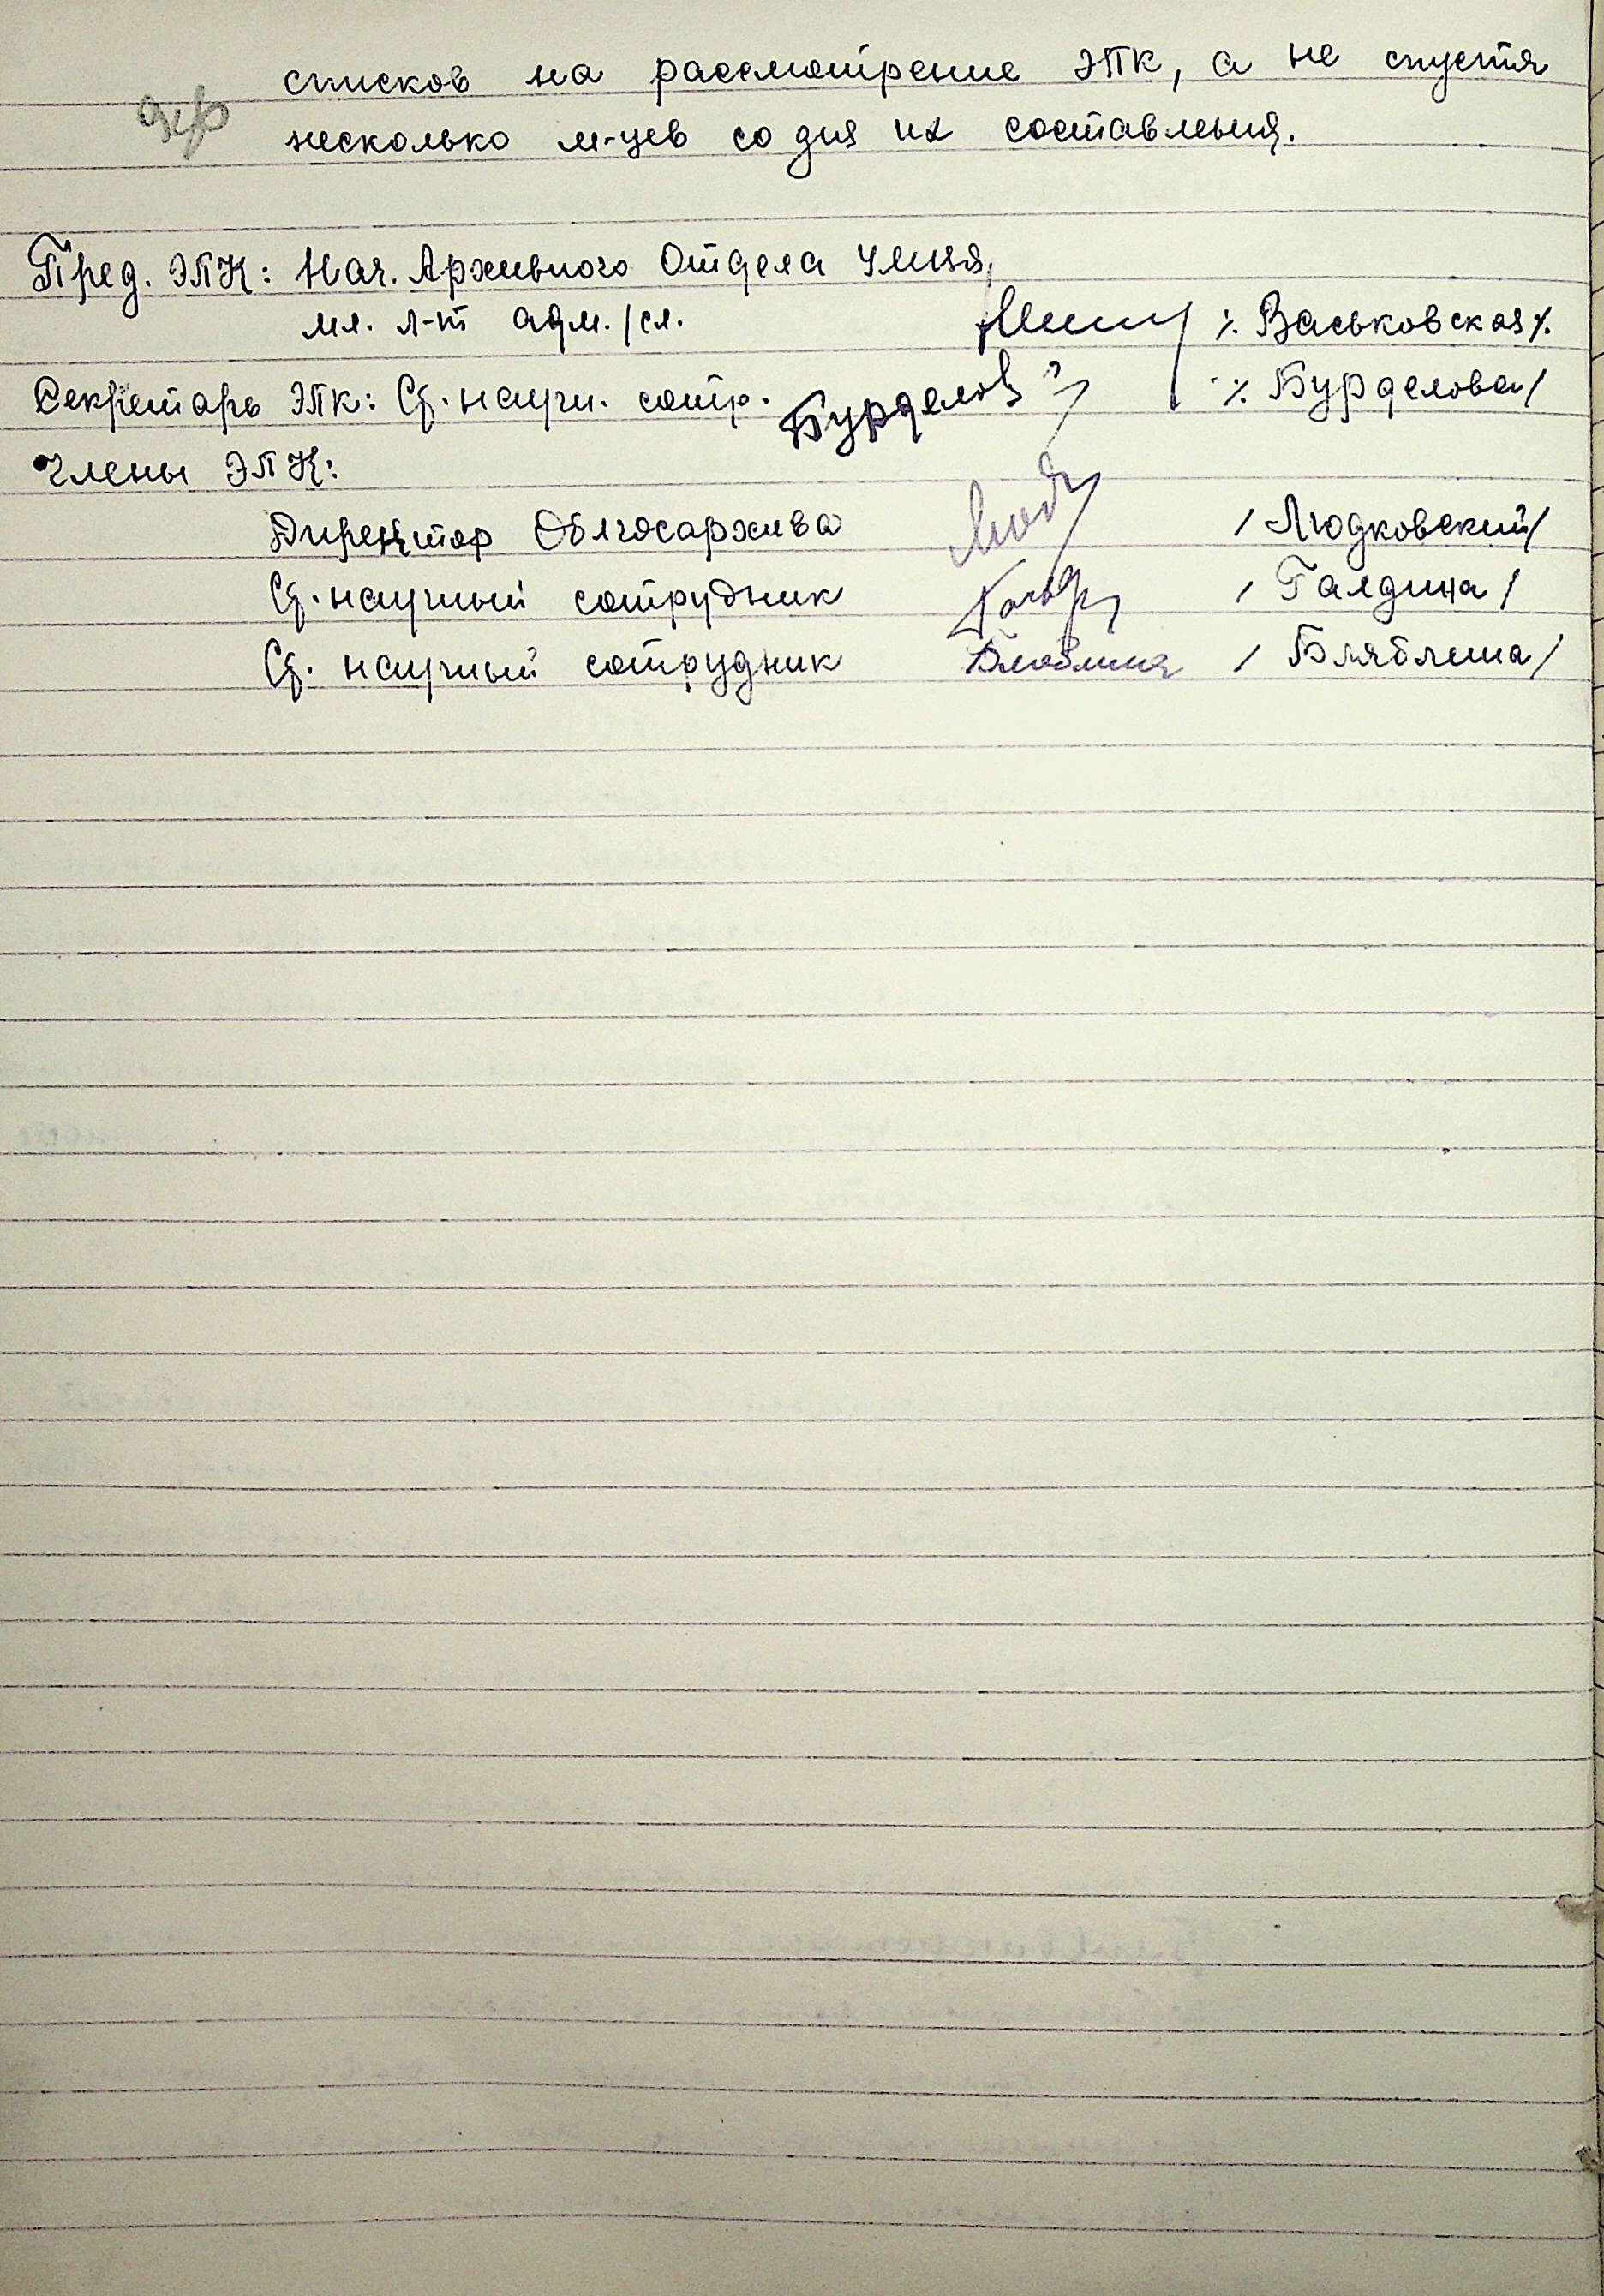 списков на рассмотрение ЭПК, а не спустя
несколько м-цев со дня их составления.
Пред. ЭПК: Нач. Архивного Отдела УМВД,
мл. л-т адм./сл. ⁒ Васьковская ⁒
Секретарь ЭПК: Ст. научн. сотр. Бурделов ⁒ Бурделова/
Члены ЭПК:
Директор Облгосархива / Людковский/
Ст. научный сотрудник / Галдина/
Ст. научный сотрудник / Бляблина/